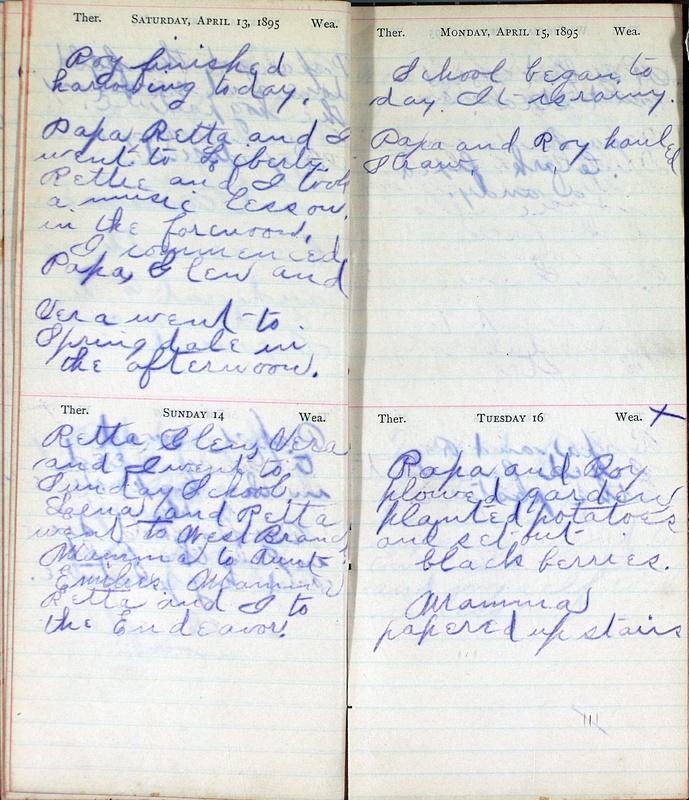 Ther. SATURDAY, APRIL 13, 1895 Wea.
Roy finished
harrowing today.
Papa Retta and I
went to Liberty
Rettie and I took
a music lesson
in the forenoon.
I commenced
Papa, Glen and
Vera went to
Springdale in
the afternoon.
Ther. SUNDAY 14 Wea.
Retta Glen, Vera
and I went to
Sunday School.
and Retta
went to West Branch
Mamma to Aunt
Emilies. Mamma
Retta and I to
the Endeavor.
Ther. MONDAY, APRIL 15, 1895 Wea.
School began to
day. It is rainy.
Papa and Roy hauled
straw.
Ther. TUESDAY 16 Wea. X
Papa and Roy
plowed garden
planted potatoes
and set out
black berries.
Mamma
papered up stairs